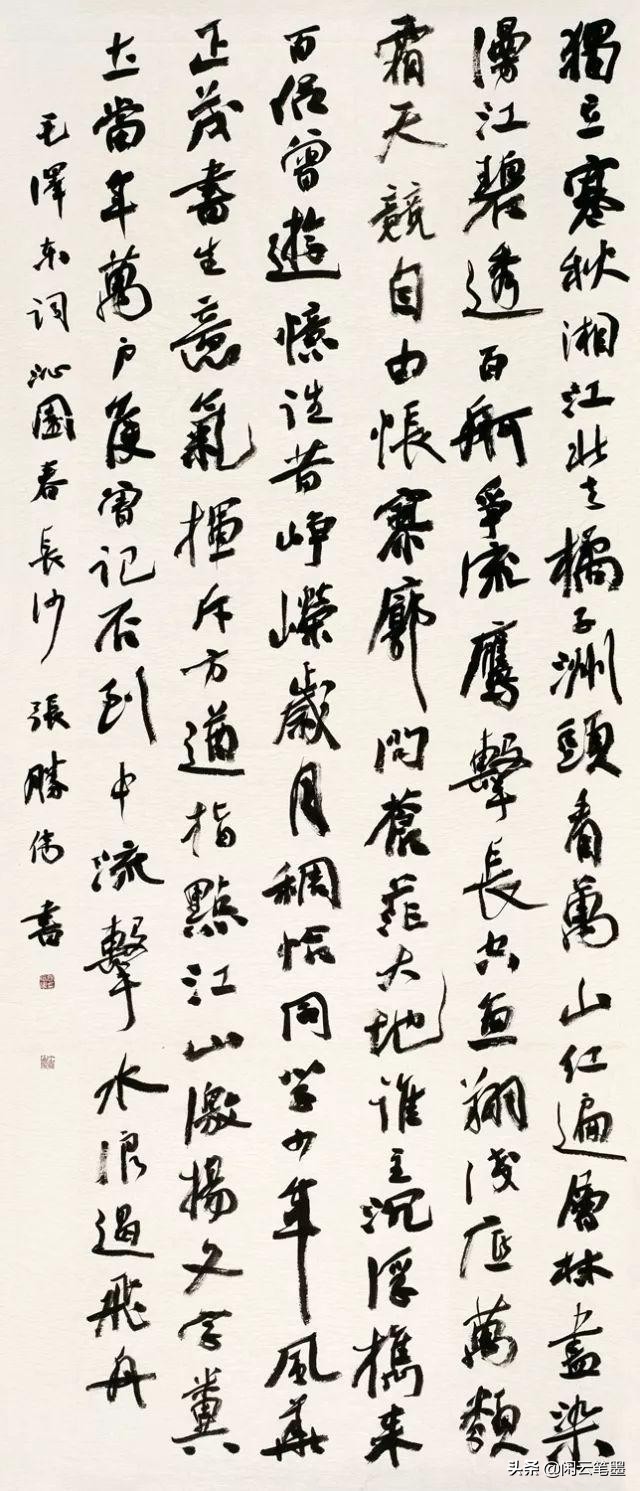 獨立寒秋湘江北去橘子洲頭看萬山紅遍層林盡染
漫江碧透百舸爭流鷹擊長空魚翔淺底萬類
霜天競自由悵寥廓問蒼茫大地誰主沉浮擕来
百侶曾遊憶往昔崢嶸歲月稠恰同學少年風華
正茂書生意氣揮斥方遒指點江山激揚文字糞
土當年萬戶侯曾記否到中流擊水浪遏飛舟
毛澤东詞沁園春長沙 張勝偉書
头条 @闲云笔墨